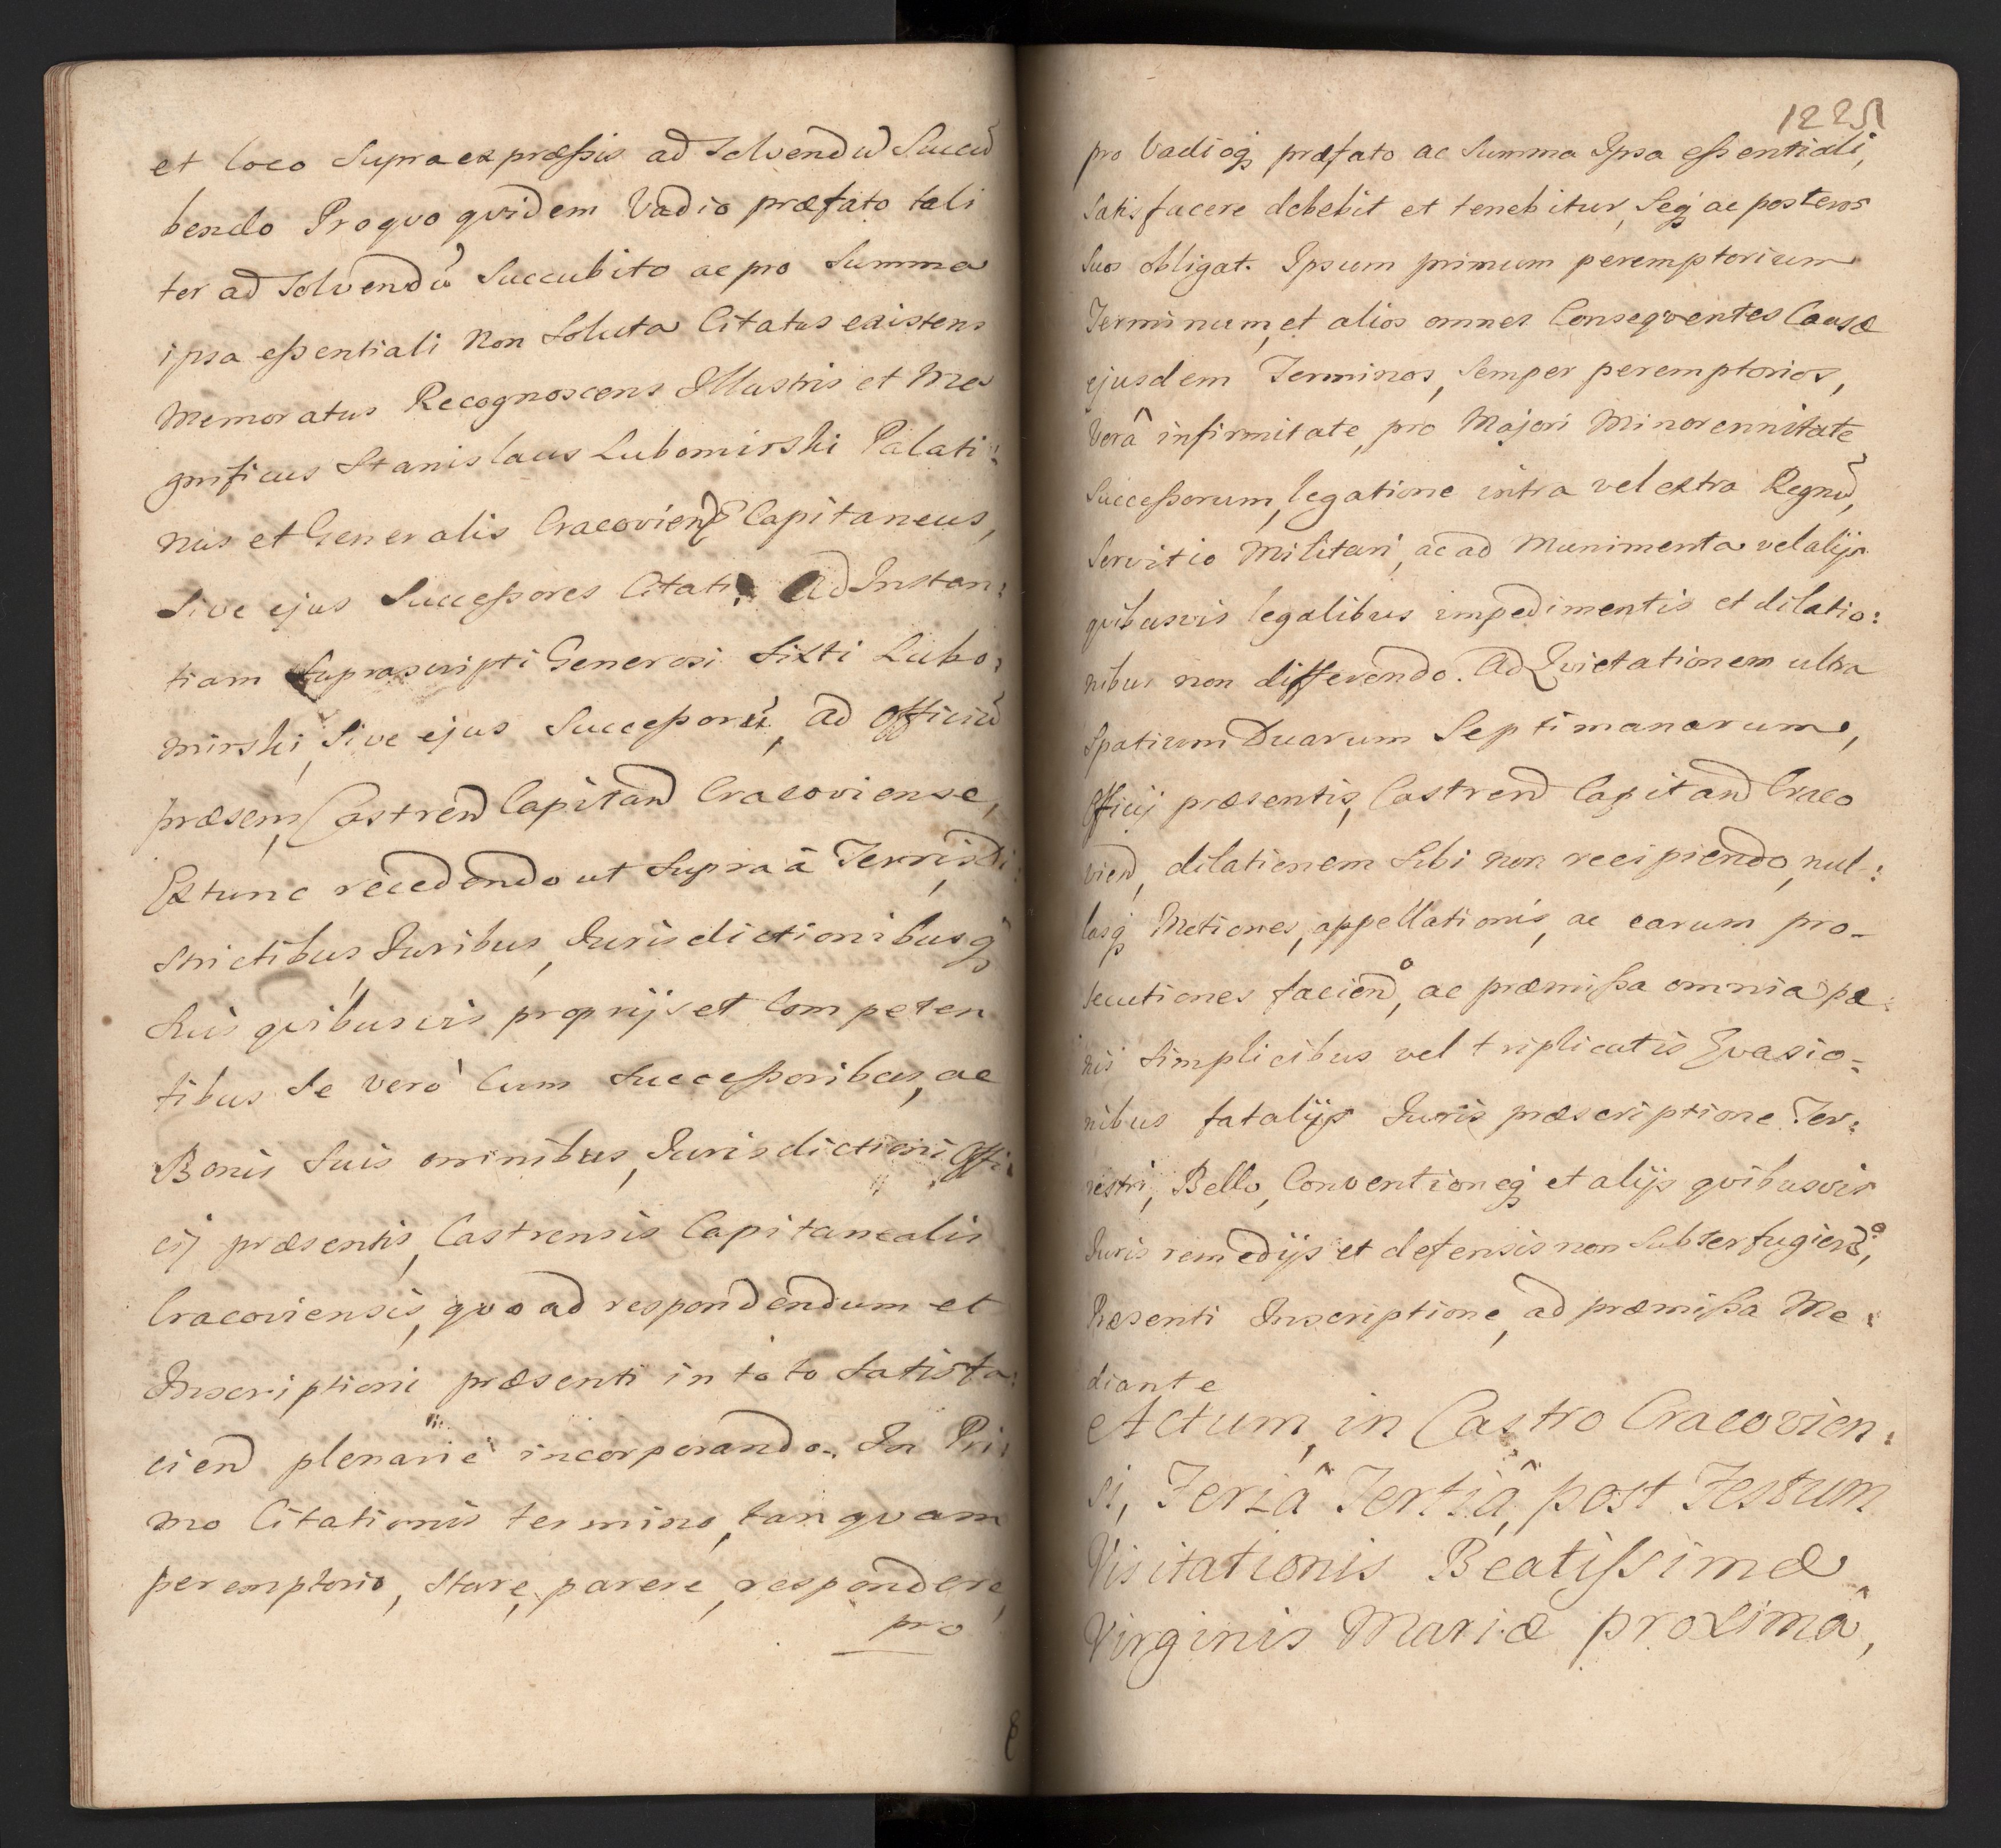 et loco supra expræssis ad solvendū Succū
bendo Pro quo qvidem Vadio præfato tali
ter ad solvendū Succubito ac pro Summa
ipsa eßentiali Non Soluta Citatus existens
Memoratus Recognoscens Illustris et Ma
gnificus Stanislaus Lubomirski Palati:
nus et Generalis Cracovien Capitaneus,
Sive ejus Succeßores Citati Ad Instan:
tiam Suprascripti Generosi Sixti Lubo:
mirski, Sive ejus Succeßorū, ad officiū
præsens, Castren Capitan Cracoviense,
Ex tunc recedendo ut Supra â Terris, Di:
strictibus, Juribus, Jurisdictionibusq
Suis qvibusvis proprijs et Competen
tibus Se verò Cum Succeßoribus, ac
Bonis Suis omnibus, Jurisdictioni Offi:
cij præsentis, Castrensis Capitanealis
Cracoviensis, qvo ad respondendum et
Inscriptioni præsenti in toto Satisfa:
cien plenariè incorporando. In Pri:
mo Citationis termino, tanqvam
peremptorio, Stare, parere, respondere,
pro
1225
pro Vadioq præfato ac Summa Ipsa eßentiali,
Satisfacere debebit et tenebitur, Seq ac posteros
Suos obligat. Ipsum primum peremptorium
Terminum, et alios omnes Conseqventes Causæ
ejusdem Terminos, Semper peremptorios,
Verâ infirmitate, pro Majori Minorennitate
Succeßorum, legatione intra vel extra Regnū,
Servitio Militari, ac ad Munimenta vel alijs
qvibusvis legalibus impedimentis et dilatio:
nibus non differendo. Ad Qvietationem ultra
Spatium Duarum Septimanarum,
Officij præsentis, Castren Capitan Craco
vien, dilationem Sibi non recipiendo, nul:
lasq Motiones, appellationis, ac earum pro-
secutiones facien°, ac præmißa omnia pæ:
nis simplicibus vel triplicatis Evasio-
nibus fatalijs Juris præscriptione Ter:
restri, Bello, Conventioneq et alijs qvibusvis
Juris remedijs et defensis non Subterfugien°,
Præsenti Inscriptione, ad præmißa Me:
diante
Actum, in Castro Cracovien:
si, Feriâ Tertiâ, post Festum
Visitationis Beatißimæ
Virginis Mariæ proximâ,